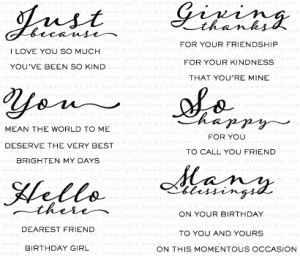 Just
because
I LOVE YOU SO MUCH
YOU'VE BEEN SO KIND
Giving
thanks
FOR YOUR FRIENDSHIP
FOR YOUR KINDNESS
THAT YOU'RE MINE
You
MEAN THE WORLD TO ME
DESERVE THE VERY BEST
BRIGHTEN MY DAYS
So
happy
FOR YOU
TO CALL YOU FRIEND
Hello
there
DEAREST FRIEND
BIRTHDAY GIRL
Many
blessings
ON YOUR BIRTHDAY
TO YOU AND YOURS
ON THIS MOMENTOUS OCCASION